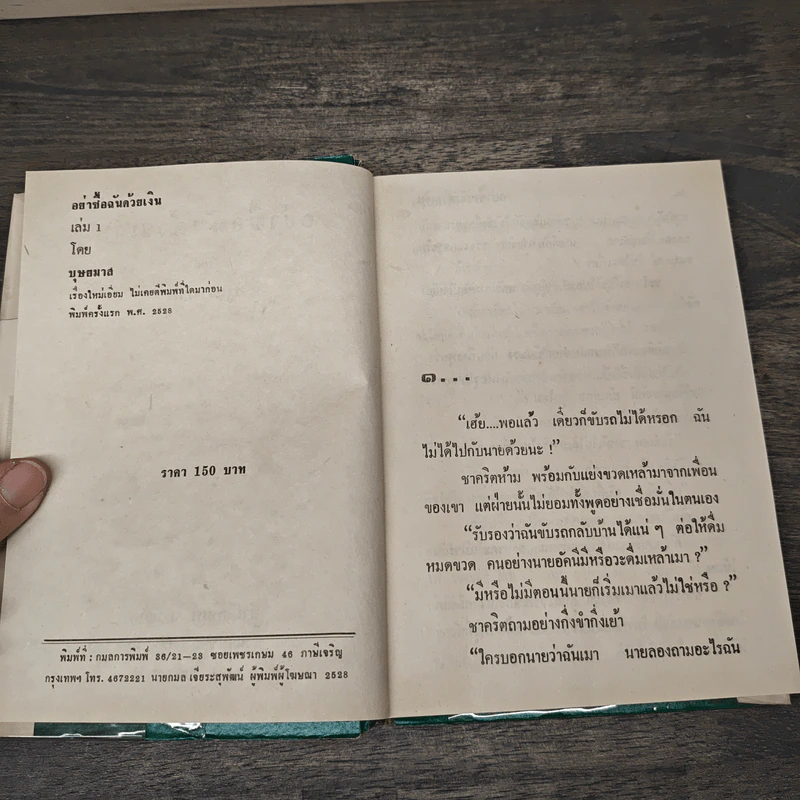 อย่าซื้อฉันด้วยเงิน
เล่ม 1
โดย
บุษยมาส
เรื่องใหม่เอี่ยม ไม่เคยตีพิมพ์ที่ใดมาก่อน
พิมพ์ครั้งแรก พ.ศ. 2528
ราคา 150 บาท
พิมพ์ที่ : กมลการพิมพ์ 36/21–23 ซอยเพชรเกษม 46 ภาษีเจริญ
กรุงเทพฯ โทร. 4672221 นายกมล เจียระสุพัฒน์ ผู้พิมพ์ผู้โฆษณา 2528
๑...
“เฮ้ย....พอแล้ว เดี๋ยวก็ขับรถไม่ได้หรอก ฉัน
ไม่ได้ไปกับนายด้วยนะ !”
ชาคริตห้าม พร้อมกับแย่งขวดเหล้ามาจากเพื่อน
ของเขา แต่ฝ่ายนั้นไม่ยอมทั้งพูดอย่างเชื่อมั่นในตนเอง
“รับรองว่าฉันขับรถกลับบ้านได้แน่ ๆ ต่อให้ดื่ม
หมดขวด คนอย่างนายอัคนีมีหรือวะดื่มเหล้าเมา ?”
“มีหรือไม่มีตอนนี้นายก็เริ่มเมาแล้วไม่ใช่หรือ ?”
ชาคริตถามอย่างกึ่งขำกึ่งเย้า
“ใครบอกนายว่าฉันเมา นายลองถามอะไรฉัน